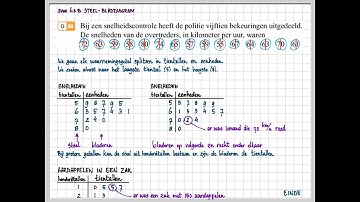 Door 6.3 B STEEL-BLADDIAGRAM
Bij een snelheidscontrole heeft de politie vijftien bekeuringen uitgedeeld.
De snelheden van de overtreders, in kilometer per uur, waren
We gaan elk waarnemingsgetal splitsen in tientallen en eenheden
We zoeken alvast naar het laagste tiental (5) en het hoogste (8).
SNELHEDEN
tientallen eenheden
5 9 8 7 9 5
6 3 5 7 4 3 1
7 2 4 0
8 0
steel bladeren
SNELHEDEN
tientallen eenheden
5 5 7 8 9 9
6 1 3 3 4 5 7
7 0 2 4
8 0
er was iemand die 72 km/h reed
bladeren op volgorde en recht onder elkaar
Bij grotere getallen kan de steel uit honderdtallen bestaan en zijn de bladeren de tientallen.
AARDAPPELEN IN EEN ZAK
honderdtallen tientallen
1 0 5 5 7
2 1 3
er was een zak met 150 aardappelen
EINDE